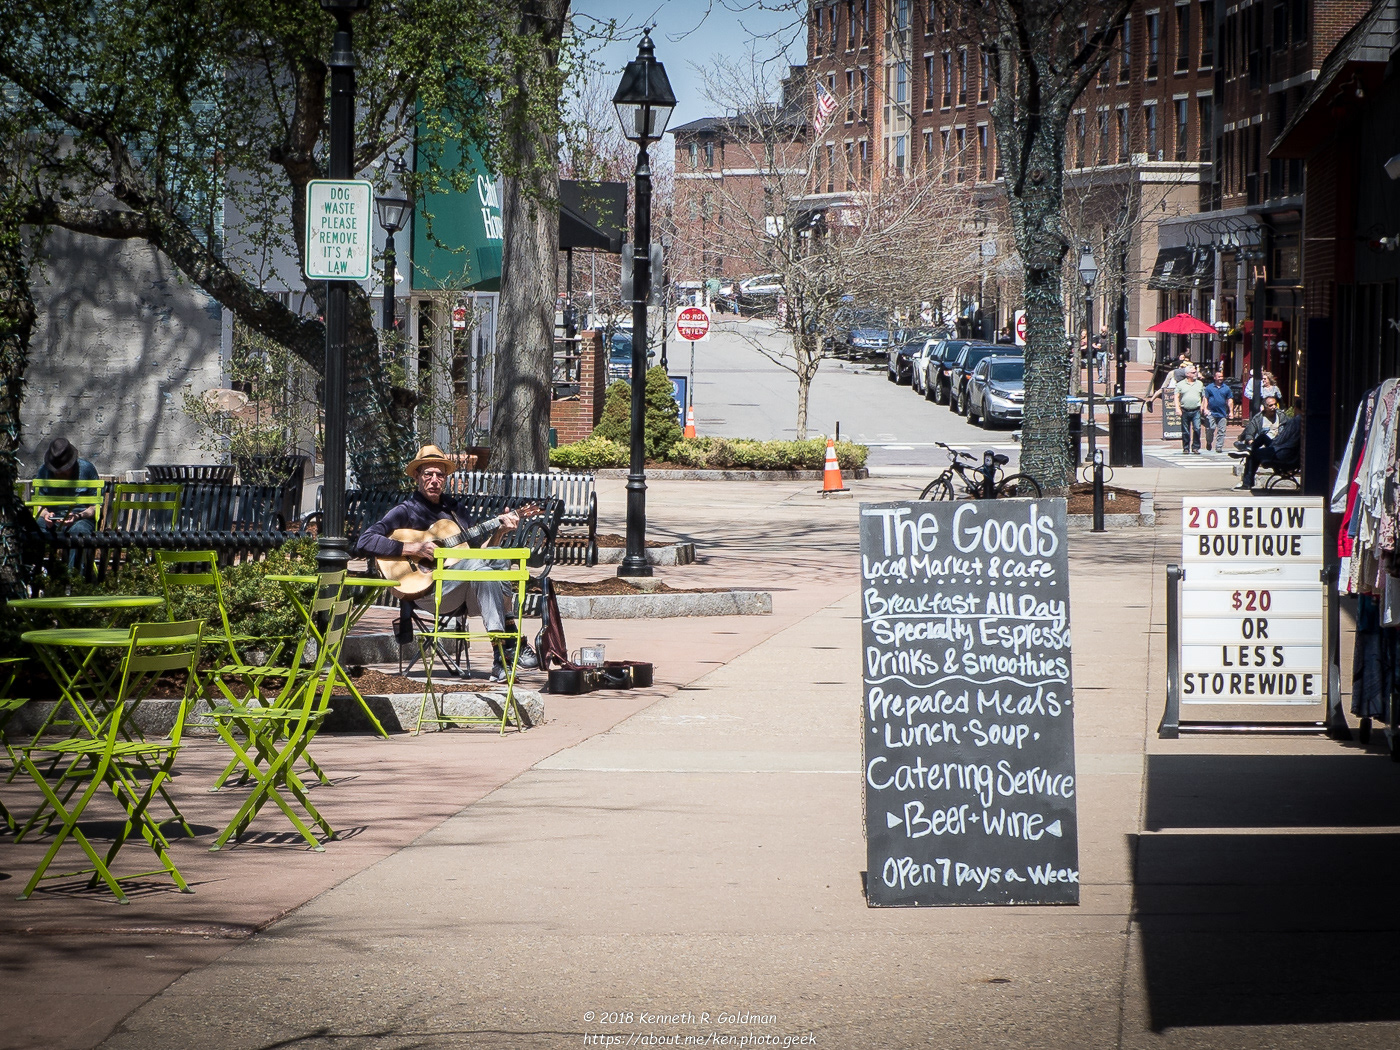 DOG
WASTE
PLEASE
REMOVE
IT'S A
LAW
DO NOT
ENTER
The Goods
Local Market & Cafe
Breakfast All Day
Specialty Espresso
Drinks & Smoothies
Prepared Meals.
. Lunch . Soup.
Catering Service
Beer + Wine
Open 7 Days a Week
20 BELOW
BOUTIQUE
$20
OR
LESS
STOREWIDE
© 2018 Kenneth R. Goldman
https://about.me/ken.photo.geek